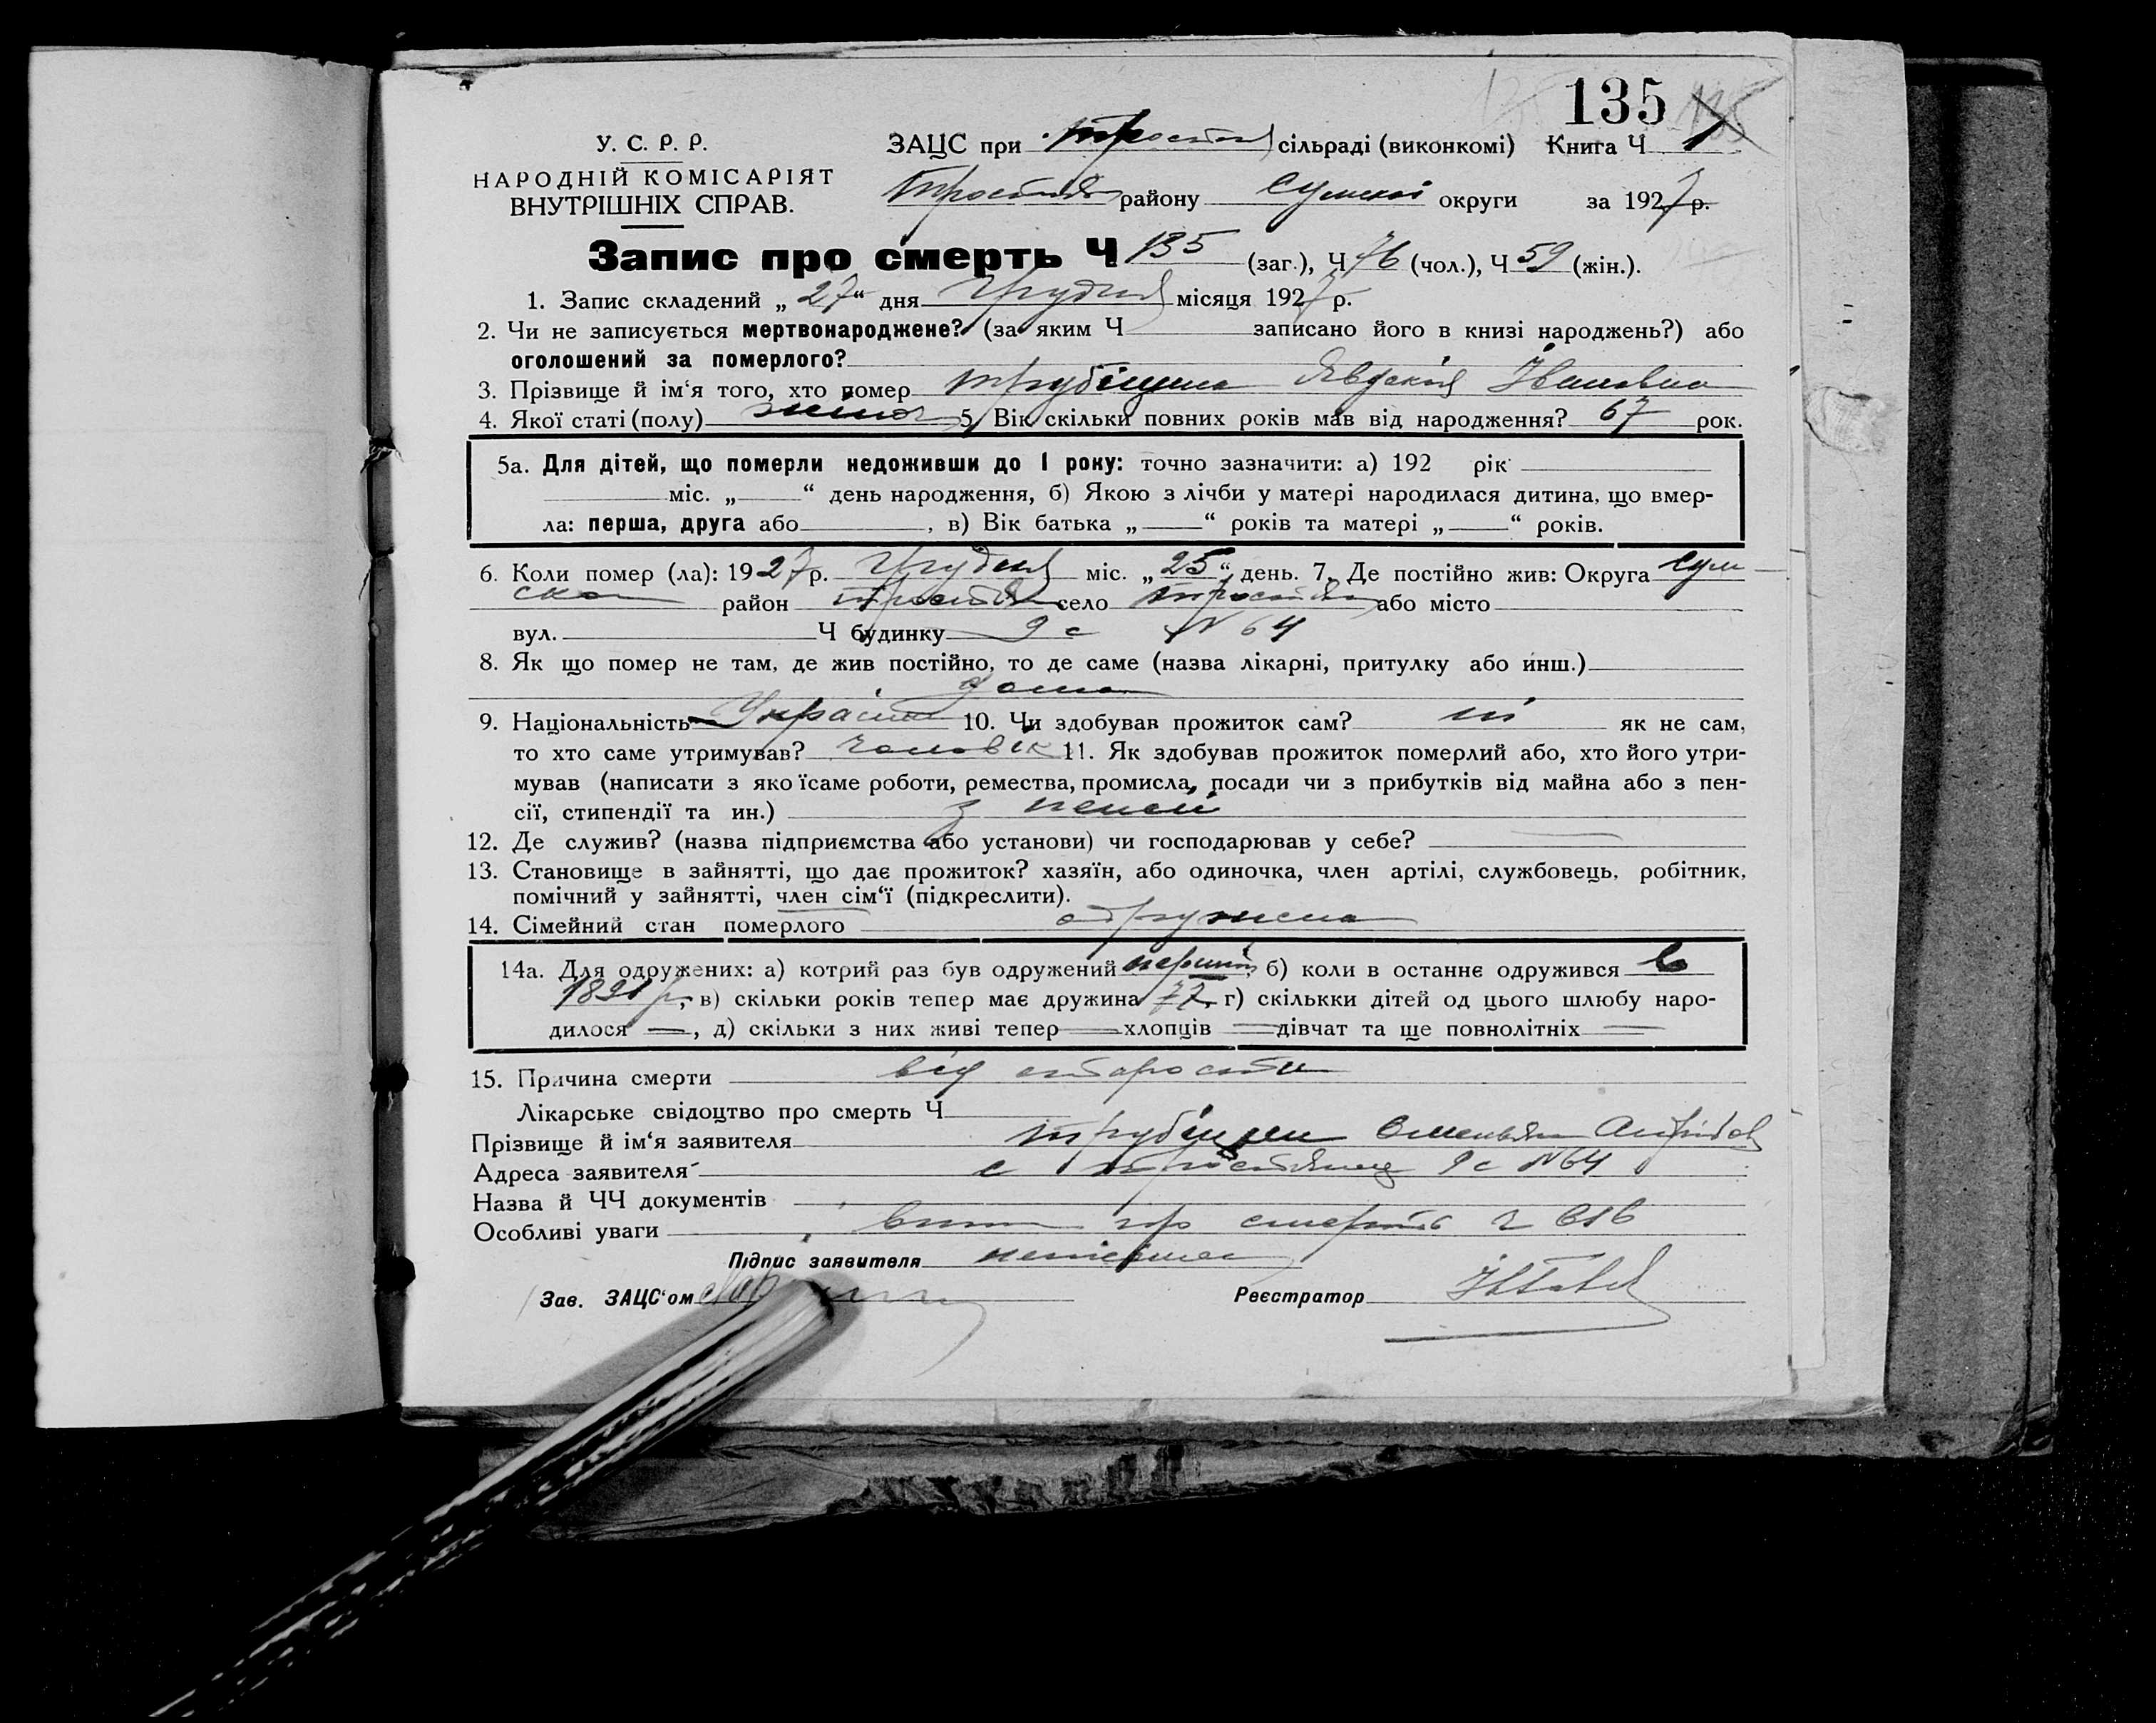 135
У. С. Р. Р.
НАРОДНІЙ КОМІСАРІЯТ
ВНУТРІШНІХ СПРАВ.
ЗАЦС при сільраді (виконкомі) Книга Ч 1
району Сумської округи за 1927 р.
Запис про смерть Ч 135 (заг.), Ч 76 (чол.), Ч 59 (жін.).
1. Запис складений „ 27 “ дня Грудня місяця 1927 р.
2. Чи не записується мертвонароджене? (за яким Ч записано його в книзі народжень?) або
оголошений за померлого?
3. Прізвище й ім‘я того, хто помер Трубіцина Явдокія Івановна
4. Якої статі (полу) жіноч 5. Вік скільки повних років мав від народження? 67 рок.
5а. Для дітей, що померли недоживши до 1 року: точно зазначити: а) 192 рік
міс. „ “ день народження, б) Якою з лічби у матері народилася дитина, що вмер-
ла: перша, друга або , в) Вік батька „ “ років та матері „ “ років.
6. Коли помер (ла): 1927 р. Грудня міс. „ 25 “ день. 7. Де постійно жив: Округа Сум-
ска район Тростян село Тростян або місто
вул. Ч будинку 9 с № 64
8. Як що помер не там, де жив постійно, то де саме (назва лікарні, притулку або инш.)
дома
9. Національність 10. Чи здобував прожиток сам? ні як не сам,
то хто саме утримував? чоловік 11. Як здобував прожиток померлий або, хто його утри-
мував (написати з якоїсаме роботи, ремества, промисла, посади чи з прибутків від майна або з пен-
сії, стипендії та ин.) з пенсії
12. Де служив? (назва підприємства або установи) чи господарював у себе?
13. Становище в зайнятті, що дає прожиток? хазяїн, або одиночка, член артілі, службовець, робітник,
помічний у зайнятті, член сім‘ї (підкреслити).
14. Сімейний стан померлого одружена
14а. Для одружених: а) котрий раз був одружений перший, б) коли в останнє одружився в
р., в) скільки років тепер має дружина 77 г) скількки дітей од цього шлюбу наро-
дилося —, д) скільки з них живі тепер — хлопців — дівчат та ще повнолітніх —
15. Причина смерти від старости
Лікарське свідоцтво про смерть Ч
Прізвище й ім‘я заявителя Трубіцин Омельян
Адреса заявителя с Тростянец 9 с № 64
Назва й ЧЧ документів
Особливі уваги про смерть
Підпис заявителя
Зав. ЗАЦС‘ом
Реєстратор